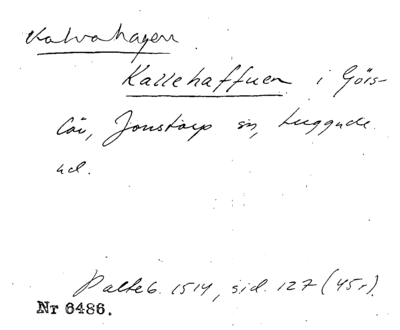 Kalvahagen
Kallehaffuen i Görs-
löv, Jonstorp sn, Luggude
hd.
Palteb. 1514, sid. 127 (45r).
Nr 6486.